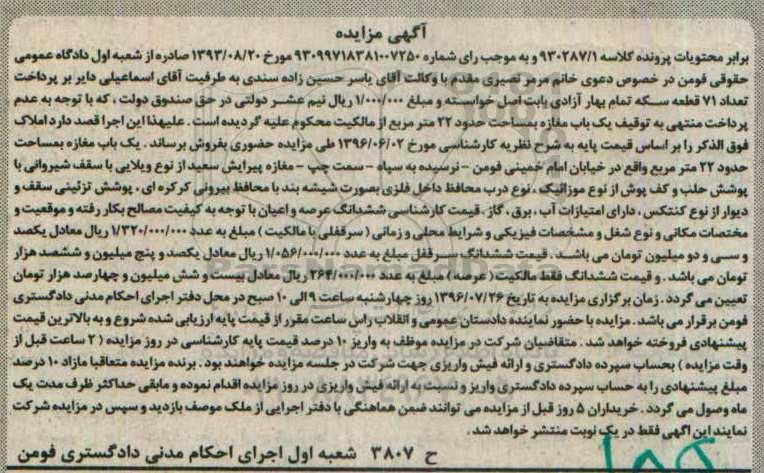 آگهی مزایده
برابر محتویات پرونده کلاسه ۹۳۰۲۸۷/۱ و به موجب رای شماره ۹۳۰۹۹۷۱۸۳۸۱۰۰۷۲۵۰ مورخ ۱۳۹۳/۰۸/۲۰ صادره از شعبه اول دادگاه عمومی
حقوقی فومن در خصوص دعوی خانم مرمر نصیری مقدم با وکالت آقای یاسر حسین زاده سندی به طرفیت آقای اسماعیلی دایر بر پرداخت
تعداد ۷۱ قطعه سکه تمام بهار آزادی بابت اصل خواسته و مبلغ ۱/۰۰۰/۰۰۰ ریال نیم عشر دولتی در حق صندوق دولت ، که با توجه به عدم
پرداخت منتهی به توقیف یک باب مغازه بمساحت حدود ۲۲ متر مربع از مالکیت محکوم علیه گردیده است . علیهذا این اجرا قصد دارد املاک
فوق الذکر را بر اساس قیمت پایه به شرح نظریه کارشناسی مورخ ۱۳۹۶/۰۶/۰۲ طی مزایده حضوری بفروش برساند . یک باب مغازه بمساحت
حدود ۲۲ متر مربع واقع در خیابان امام خمینی فومن - نرسیده به سپاه - سمت چپ - مغازه پیرایش سعید از نوع ویلایی با سقف شیروانی با
پوشش حلب و کف پوش از نوع موزائیک ، نوع درب محافظ داخل فلزی بصورت شیشه بند با محافظ بیرونی کرکره ای ، پوشش تزئینی سقف و
دیوار از نوع کنتکس ، دارای امتیازات آب ، برق ، گاز . قیمت کارشناسی ششدانگ عرصه و اعیان با توجه به کیفیت مصالح بکار رفته و موقعیت و
مختصات مکانی و نوع شغل و مشخصات فیزیکی و شرایط محلی و زمانی ( سرقفلی با مالکیت ) مبلغ به عدد ۱/۳۲۰/۰۰۰/۰۰۰ ریال معادل یکصد
و سی و دو میلیون تومان می باشد . قیمت ششدانگ سرقفل مبلغ به عدد ۱/۰۵۶/۰۰۰/۰۰۰ ریال معادل یکصد و پنج میلیون و ششصد هزار
تومان می باشد . و قیمت ششدانگ فقط مالکیت (عرصه ) مبلغ به عدد ۲۶۴/۰۰۰/۰۰۰ ریال معادل بیست و شش میلیون و چهارصد هزار تومان
تعیین می گردد . زمان برگزاری مزایده به تاریخ ۱۳۹۶/۰۷/۲۶ روز چهارشنبه ساعت ۹ الی ۱۰ صبح در محل دفتر اجرای احکام مدنی دادگستری
فومن برقرار می باشد . مزایده با حضور نماینده دادستان عمومی و انقلاب راس ساعت مقرر از قیمت پایه ارزیابی شده شروع و به بالاترین قیمت
پیشنهادی فروخته خواهد شد . متقاضیان شرکت در مزایده موظف به واریز ۱۰ درصد قیمت پایه کارشناسی در روز مزایده ( ۲ ساعت قبل از
وقت مزایده ) بحساب سپرده دادگستری و ارائه فیش واریزی جهت شرکت در جلسه مزایده خواهند بود . برنده مزایده متعاقبا مازاد ۱۰ درصد
مبلغ پیشنهادی را به حساب سپرده دادگستری واریز و نسبت به ارائه فیش واریزی در روز مزایده اقدام نموده و مابقی حداکثر ظرف مدت یک
ماه وصول می گردد . خریداران ۵ روز قبل از مزایده می توانند ضمن هماهنگی با دفتر اجرایی از ملک موصف بازدید و سپس در مزایده شرکت
نمایند این اگهی فقط در یک نوبت منتشر خواهد شد .
ح ۳۸۰۷ شعبه اول اجرای احکام مدنی دادگستری فومن